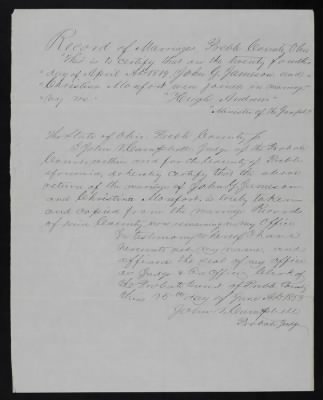 Record of Marriages, Preble County Ohio
"This is to certify that on the twenty fourth
"day of April A.D. 1819, John G. Jamison and
"Christina Monfort were joined in marriage
"by me. "Hugh
"Minister of the Gospel"
The State of Ohio, Preble County, ss
I John V. Campbell Judge of the Probate
Court, within and for the County of Preble
aforesaid, do hereby certify that the above
notice of the marriage of John G. Jameson
and Christina Monfort, is truly taken
and copied from the marriage Records
of said County, now remaining in my Office
In testimony whereof I have
hereunto set my name, and
affixed the seal of my office
as Judge & Ex Officio Clerk of
the Probate Court of Preble County
this 25th day of June A.D. 1853
John V. Campbell
Probate Judge